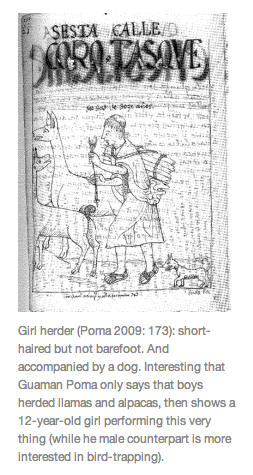 SESTA CALLE
CORO·TASQVE
Girl herder (Poma 2009: 173): short-
haired but not barefoot. And
accompanied by a dog. Interesting that
Guaman Poma only says that boys
herded llamas and alpacas, then shows a
12-year-old girl performing this very
thing (while he male counterpart is more
interested in bird-trapping).